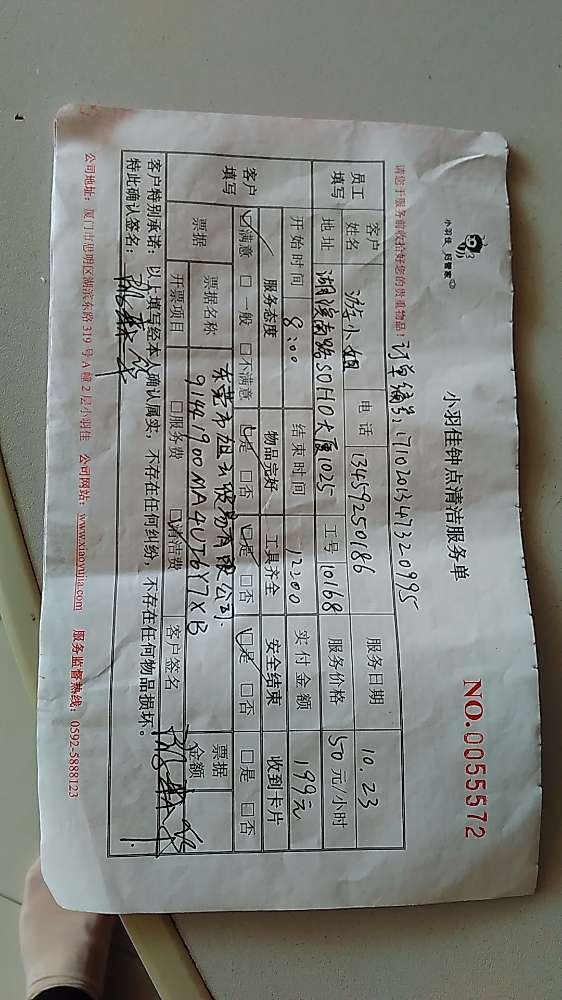 小羽佳 好管家
小羽佳钟点清洁服务单
NO.0055572
请您于服务前收拾好您的贵重物品!
订单编号:1710201347320995
员工填写
客户姓名 游小姐 电话 13459250186 服务日期 10.23
地址 湖滨南路SOHO大厦1025 工号 10168 服务价格 50元/小时
开始时间 8:00 结束时间 12:00 实付金额 199元
客户填写
服务态度 物品完好 工具齐全 安全结束 收到卡片
☑满意 □一般 □不满意 ☑是 □否 ☑是 □否 ☑是 □否 □是 □否
票据 票据名称 东莞市旭云贸易有限公司 票据金额
91441900MA4UJ0Y7XB
开票项目 □服务费 ☑清洁费 客户签名
客户特别承诺:以上填写经本人确认属实,不存在任何纠纷,不存在任何物品损坏。
特此确认签名:
公司地址:厦门市思明区湖滨东路319号A幢2层小羽佳 公司网站:www.xiaoyujia.com 服务监督热线:0592-5888123